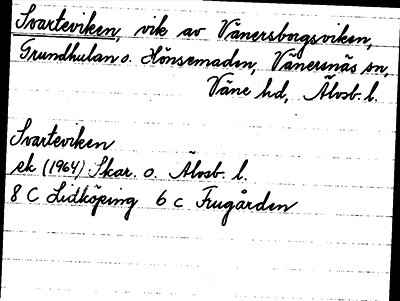 Svarteviken, vik av Vänersborgsviken,
Grundhulan o. Hönsemaden, Vänersnäs sn,
Väne hd, Älvsb. l.
Svarteviken
ek (1964) Skar. o. Älvsb. l.
8 C Lidköping 6 c Frugården